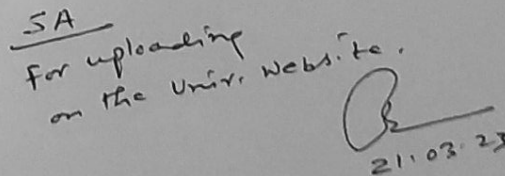 SA
For uploading
on the Univ. website.
21.03.23